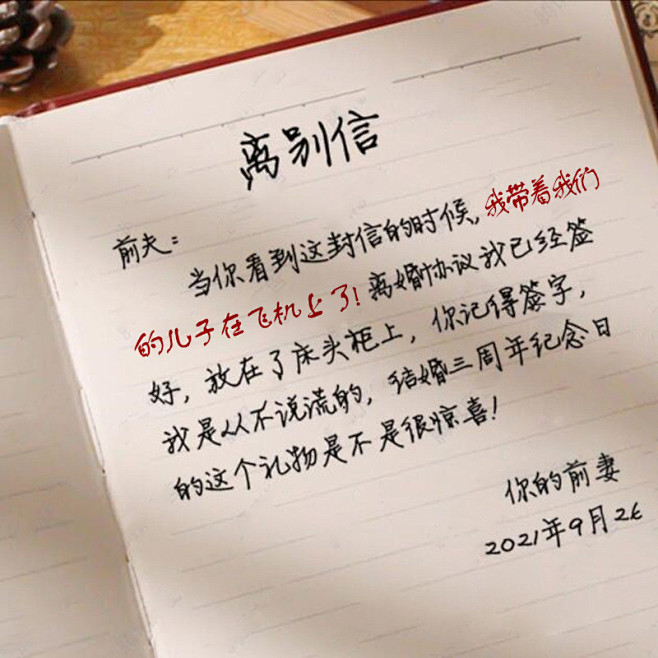 离别信
前夫：
当你看到这封信的时候，我带着我们
的儿子在飞机上了！离婚协议我已经签
好，放在了床头柜上，你记得签字，
我是从不说谎的，结婚三周年纪念日
的这个礼物是不是很惊喜！
你的前妻
2021年9月26